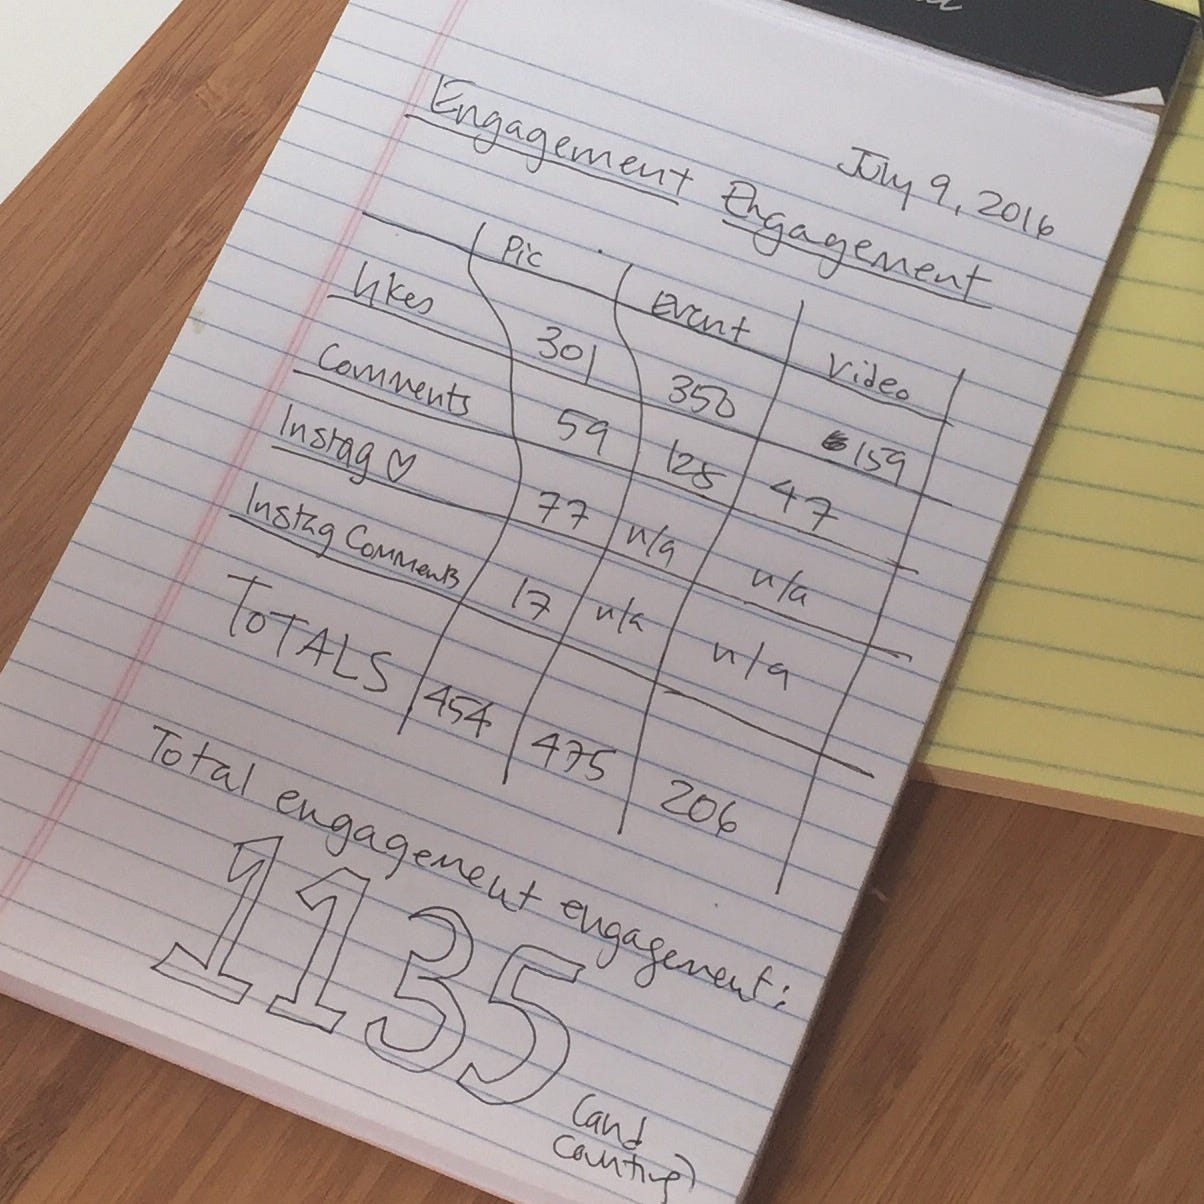 July 9, 2016
Engagement Engagement
Pic Event Video
Likes 301 350 159
Comments 59 125 47
Instag ♡ 77 n/a n/a
Instag Comments 17 n/a n/a
TOTALS 454 475 206
Total engagement engagement:
1135
(and
counting)